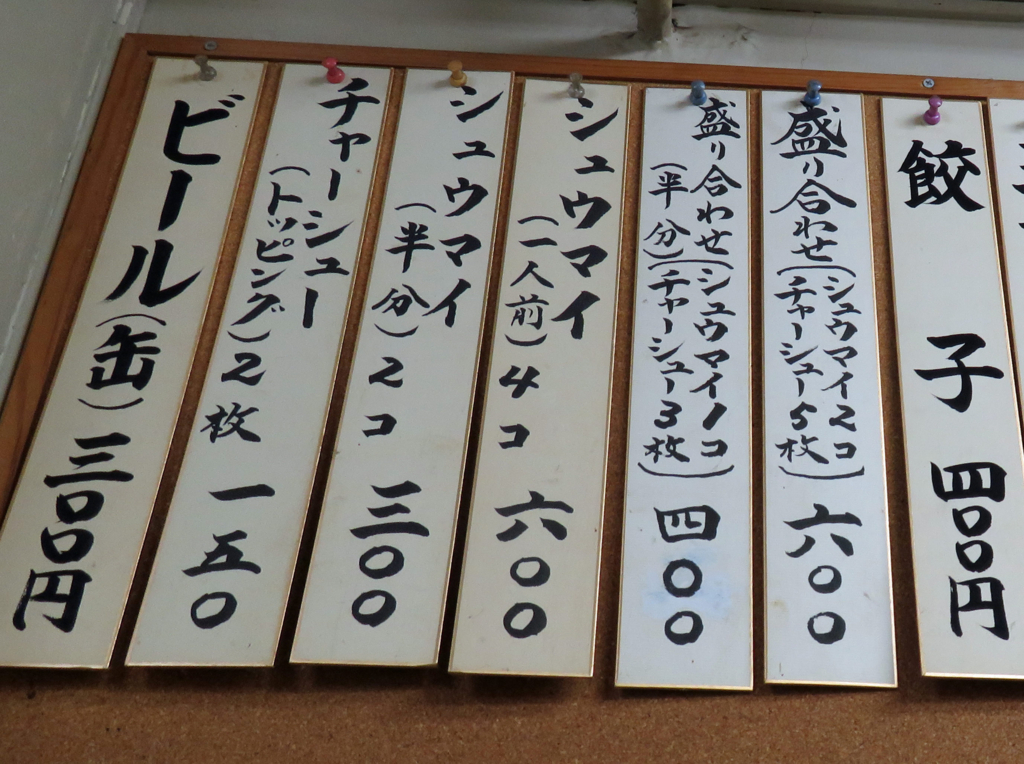 餃子 四〇〇円
盛り合わせ(シュウマイ2コ
チャーシュー5枚) 六〇〇
盛り合わせ(シュウマイ1コ
(半分)チャーシュー3枚) 四〇〇
シュウマイ
(一人前)4コ 六〇〇
シュウマイ
(半分)2コ 三〇〇
チャーシュー
(トッピング)2枚 一五〇
ビール(缶)三〇〇円